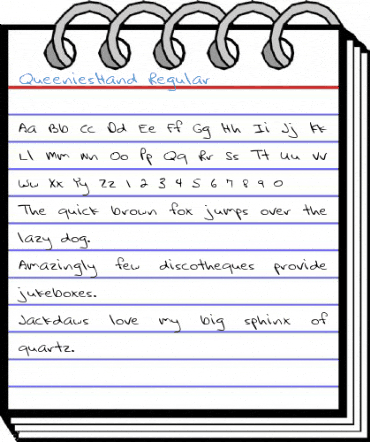 QueeniesHand Regular
Aa Bb Cc Dd Ee Ff Gg Hh Ii Jj Kk
Ll Mm Nn Oo Pp Qq Rr Ss Tt Uu Vv
Ww Xx Yy Zz 1 2 3 4 5 6 7 8 9 0
The quick brown fox jumps over the
lazy dog.
Amazingly few discotheques provide
jukeboxes.
Jackdaws love my big sphinx of
quartz.